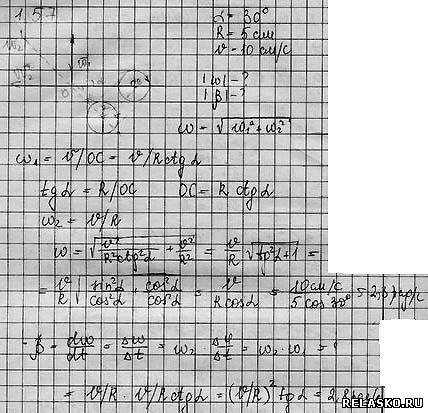 1.57
α = 30°
R = 5 см
v = 10 см/с
|ω| - ?
|β| - ?
ω = √(ω₁² + ω₂²)
ω₁ = v/OC = v/R ctg α
tg α = R/OC OC = R ctg α
ω₂ = v/R
ω = √(v²/(R² ctg² α) + v²/R²) = v/R √(tg² α + 1) =
= v/R √(sin² α/cos² α + cos² α/cos² α) = v/(R cos α) = 10 см/с / 5 cos 30° = 2,3 рад/с
β = dω/dt = Δω/Δt = ω₂ · Δφ/Δt = ω₂ · ω₁ =
= v/R · v/R ctg α = (v/R)² tg α =
RELASKO.RU